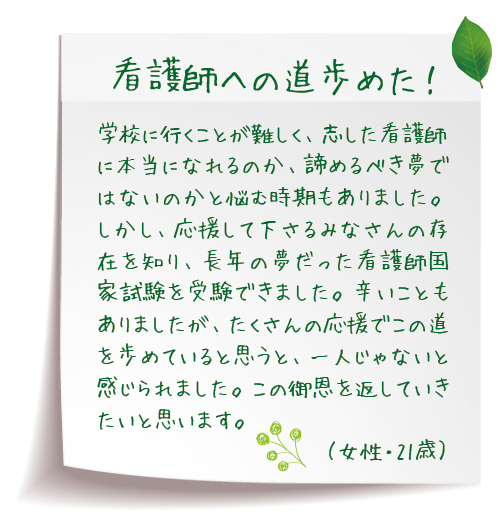 看護師への道歩めた！
学校に行くことが難しく、志した看護師
に本当になれるのか、諦めるべき夢で
はないのかと悩む時期もありました。
しかし、応援して下さるみなさんの存
在を知り、長年の夢だった看護師国
家試験を受験できました。辛いことも
ありましたが、たくさんの応援でこの道
を歩めていると思うと、一人じゃないと
感じられました。この御恩を返していき
たいと思います。
（女性・21歳）